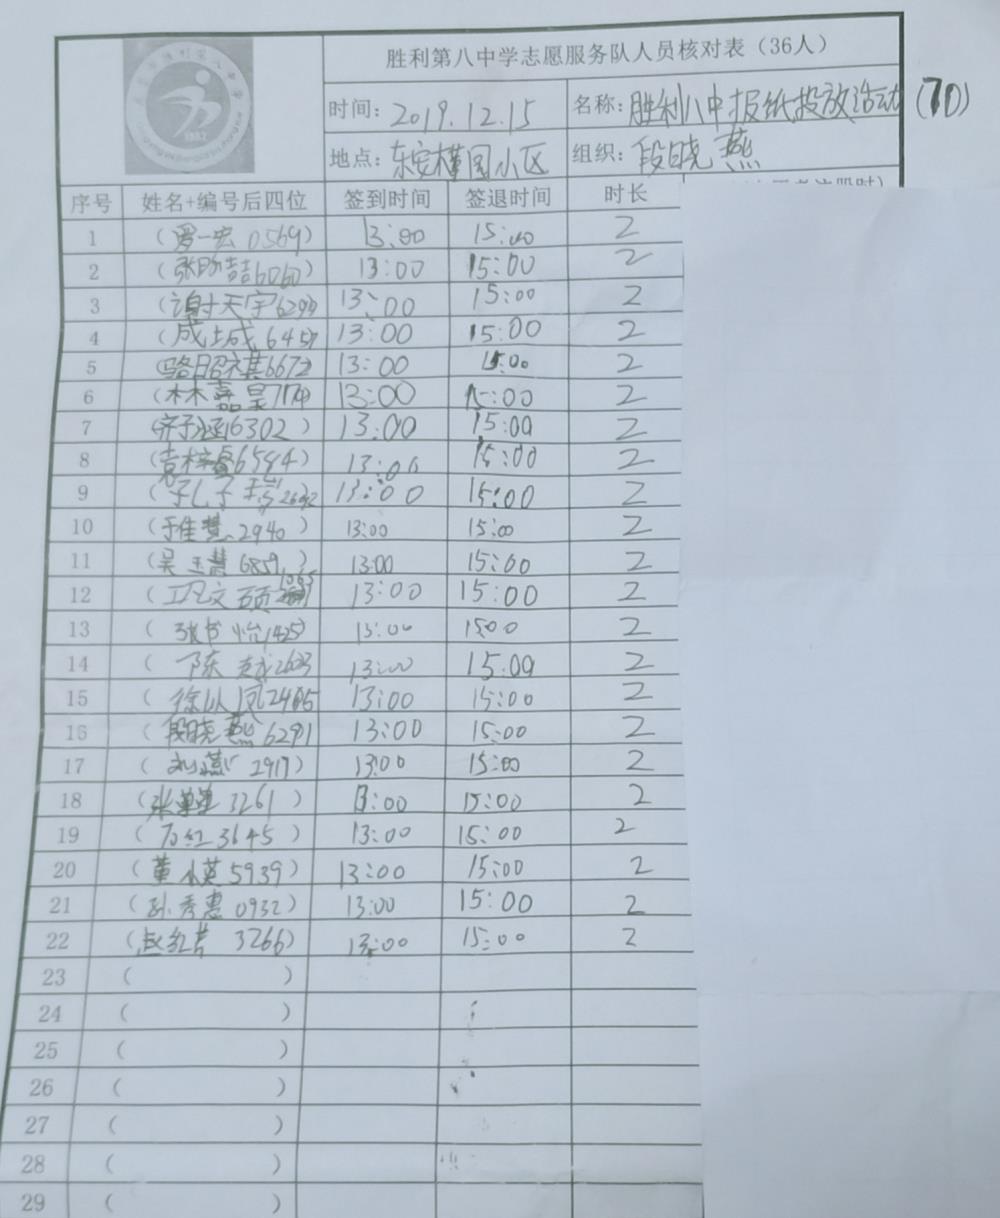 胜利第八中学志愿服务队人员核对表（36人）
时间：2019.12.15 名称：胜利八中报纸投放活动 (70)
地点：东安槿园小区 组织：段晓燕
序号 姓名+编号后四位 签到时间 签退时间 时长
1 (罗一宏 0569) 13:00 15:00 2
2 (张 喆6060) 13:00 15:00 2
3 (谢天宇629) 13:00 15:00 2
4 (成士成 6457 13:00 15:00 2
5 (骆昭祺6672 13:00 15:00 2
6 (林嘉昊7174) 13:00 15:00 2
7 (齐子涵6302) 13:00 15:00 2
8 (袁梓 6584) 13:00 15:00 2
9 (孔子 2692 13:00 15:00 2
10 (于佳慧 2940) 13:00 15:00 2
11 (吴玉慧 6859) 13:00 15:00 2
12 (巩文硕 1065) 13:00 15:00 2
13 (张书怡1425) 13:00 15:00 2
14 (陈 2623 13:00 15:00 2
15 (徐以凤2485 13:00 15:00 2
16 (段晓燕6291) 13:00 15:00 2
17 (刘燕 2917) 13:00 15:00 2
18 (张 3261) 13:00 15:00 2
19 (石红3645) 13:00 15:00 2
20 (董小英5939) 13:00 15:00 2
21 (孙秀惠 0932) 13:00 15:00 2
22 (赵红 3266) 13:00 15:00 2
23 ( )
24 ( )
25 ( )
26 ( )
27 ( )
28 ( )
29 ( )